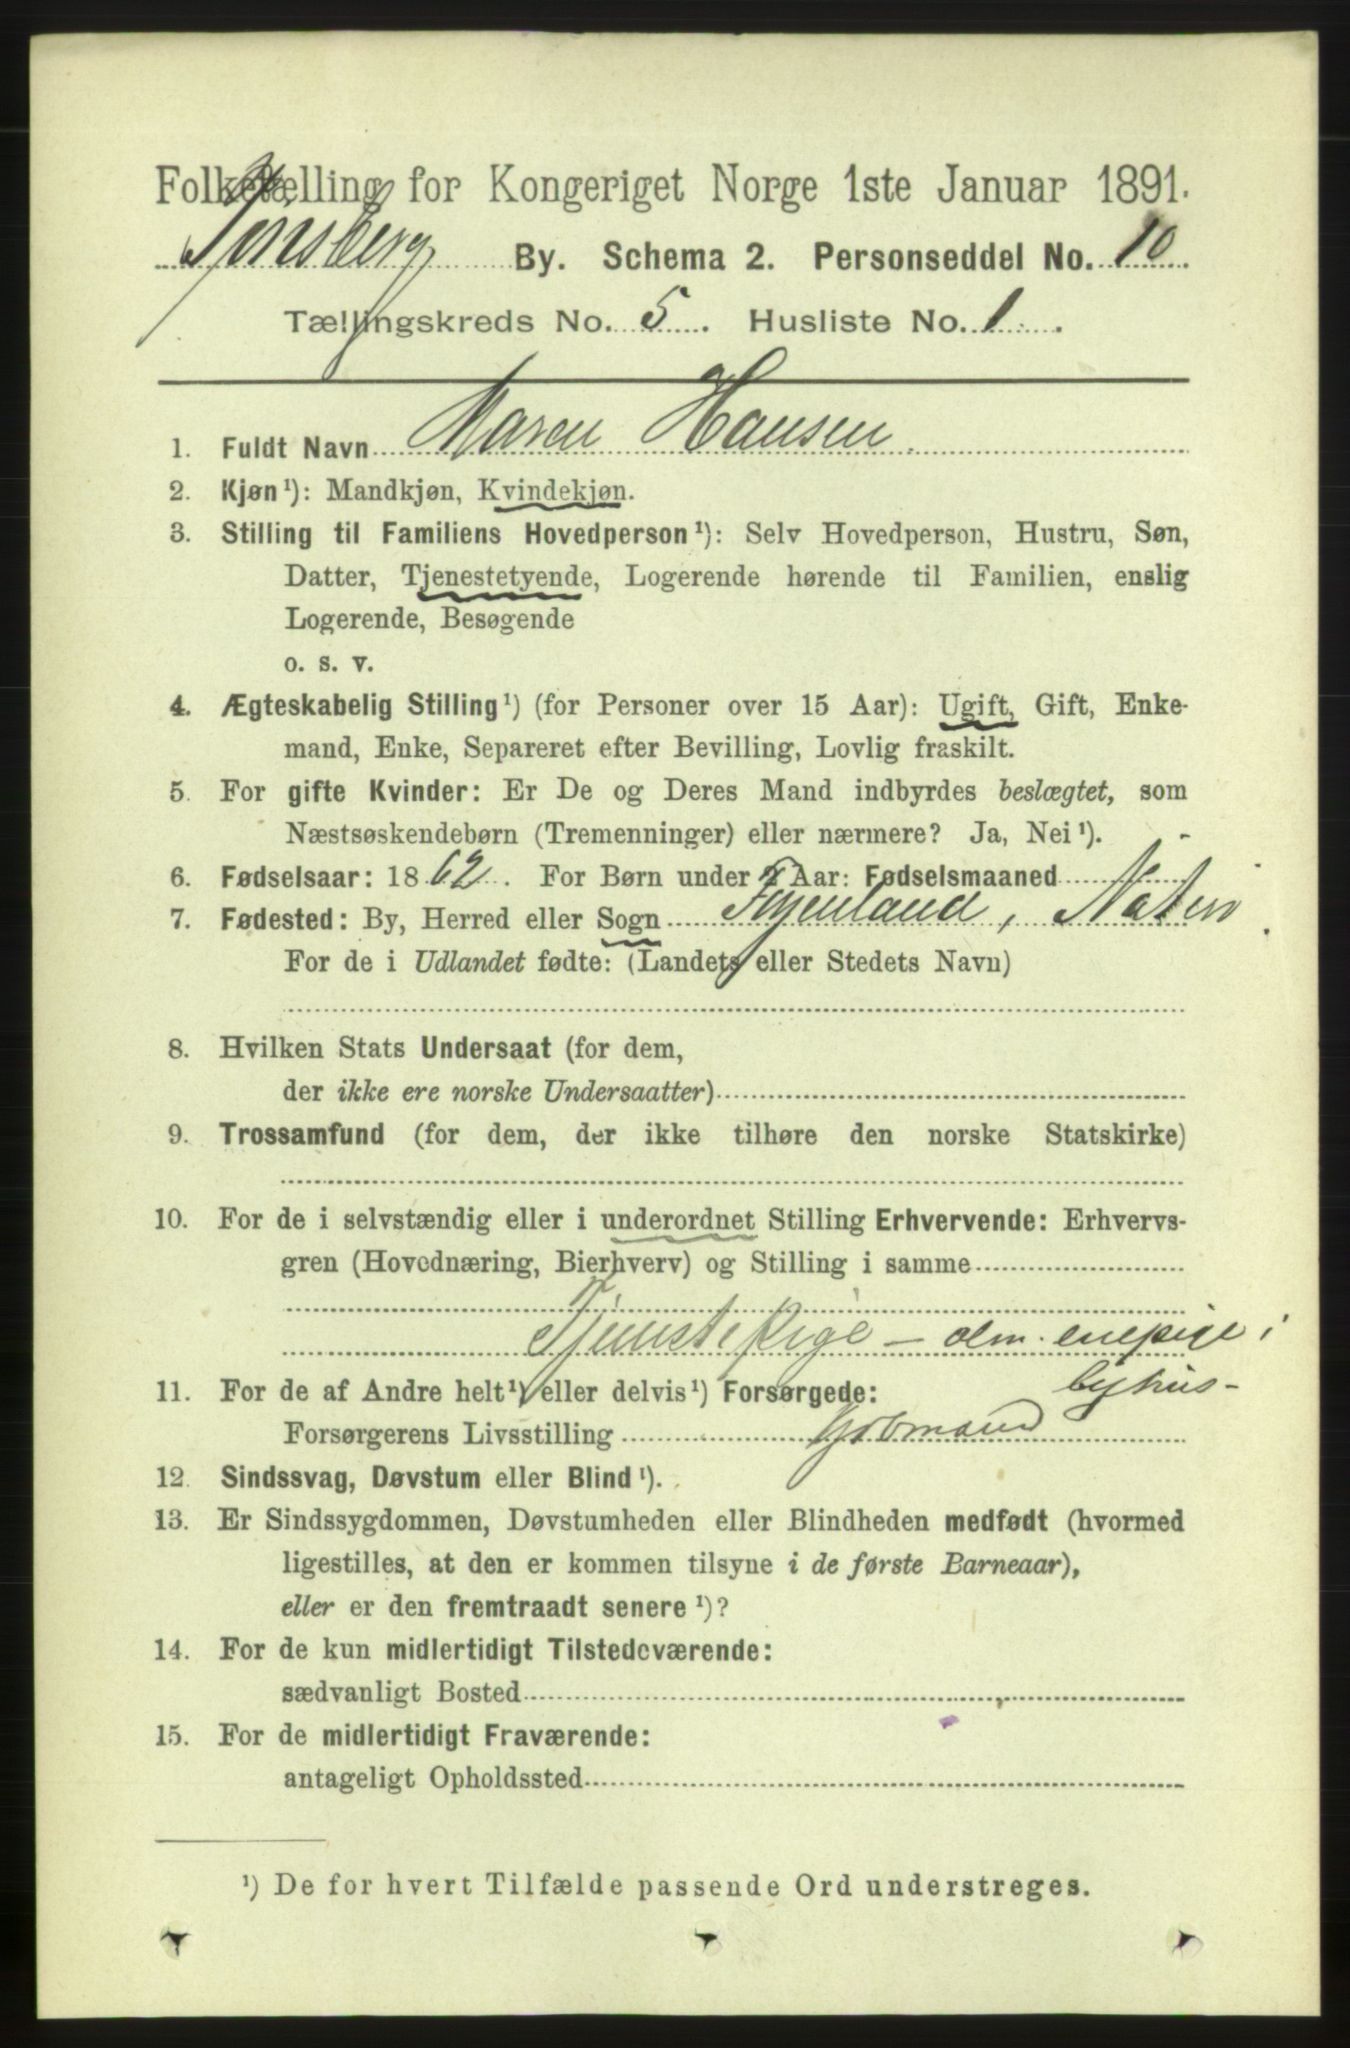 Folketælling for Kongeriget Norge 1ste Januar 1891.
Tønsberg By. Schema 2. Personseddel No. 10
Tællingskreds No. 5. Husliste No. 1.
1. Fuldt Navn Maren Hansen.
2. Kjøn¹): Mandkjøn, Kvindekjøn.
3. Stilling til Familiens Hovedperson¹): Selv Hovedperson, Hustru, Søn,
Datter, Tjenestetyende, Logerende hørende til Familien, enslig
Logerende, Besøgende
o. s. v.
4. Ægteskabelig Stilling¹) (for Personer over 15 Aar): Ugift, Gift, Enke-
mand, Enke, Separeret efter Bevilling, Lovlig fraskilt.
5. For gifte Kvinder: Er De og Deres Mand indbyrdes beslægtet, som
Næstsøskendebørn (Tremenninger) eller nærmere? Ja, Nei¹). -
6. Fødselsaar: 1862. For Børn under 2 Aar: Fødselsmaaned
7. Fødested: By, Herred eller Sogn Føyenland, Nøterø
For de i Udlandet fødte: (Landets eller Stedets Navn)
8. Hvilken Stats Undersaat (for dem,
der ikke ere norske Undersaatter)
9. Trossamfund (for dem, der ikke tilhøre den norske Statskirke)
10. For de i selvstændig eller i underordnet Stilling Erhvervende: Erhvervs-
gren (Hovednæring, Bierhverv) og Stilling i samme
Tjenstepige - alm. enepige i
byhus-
11. For de af Andre helt¹) eller delvis¹) Forsørgede:
Forsørgerens Livsstilling Kjøbmand
12. Sindssvag, Døvstum eller Blind¹).
13. Er Sindssygdommen, Døvstumheden eller Blindheden medfødt (hvormed
ligestilles, at den er kommen tilsyne i de første Barneaar),
eller er den fremtraadt senere¹)?
14. For de kun midlertidigt Tilstedeværende:
sædvanligt Bosted
15. For de midlertidigt Fraværende:
antageligt Opholdssted
¹) De for hvert Tilfælde passende Ord understreges.